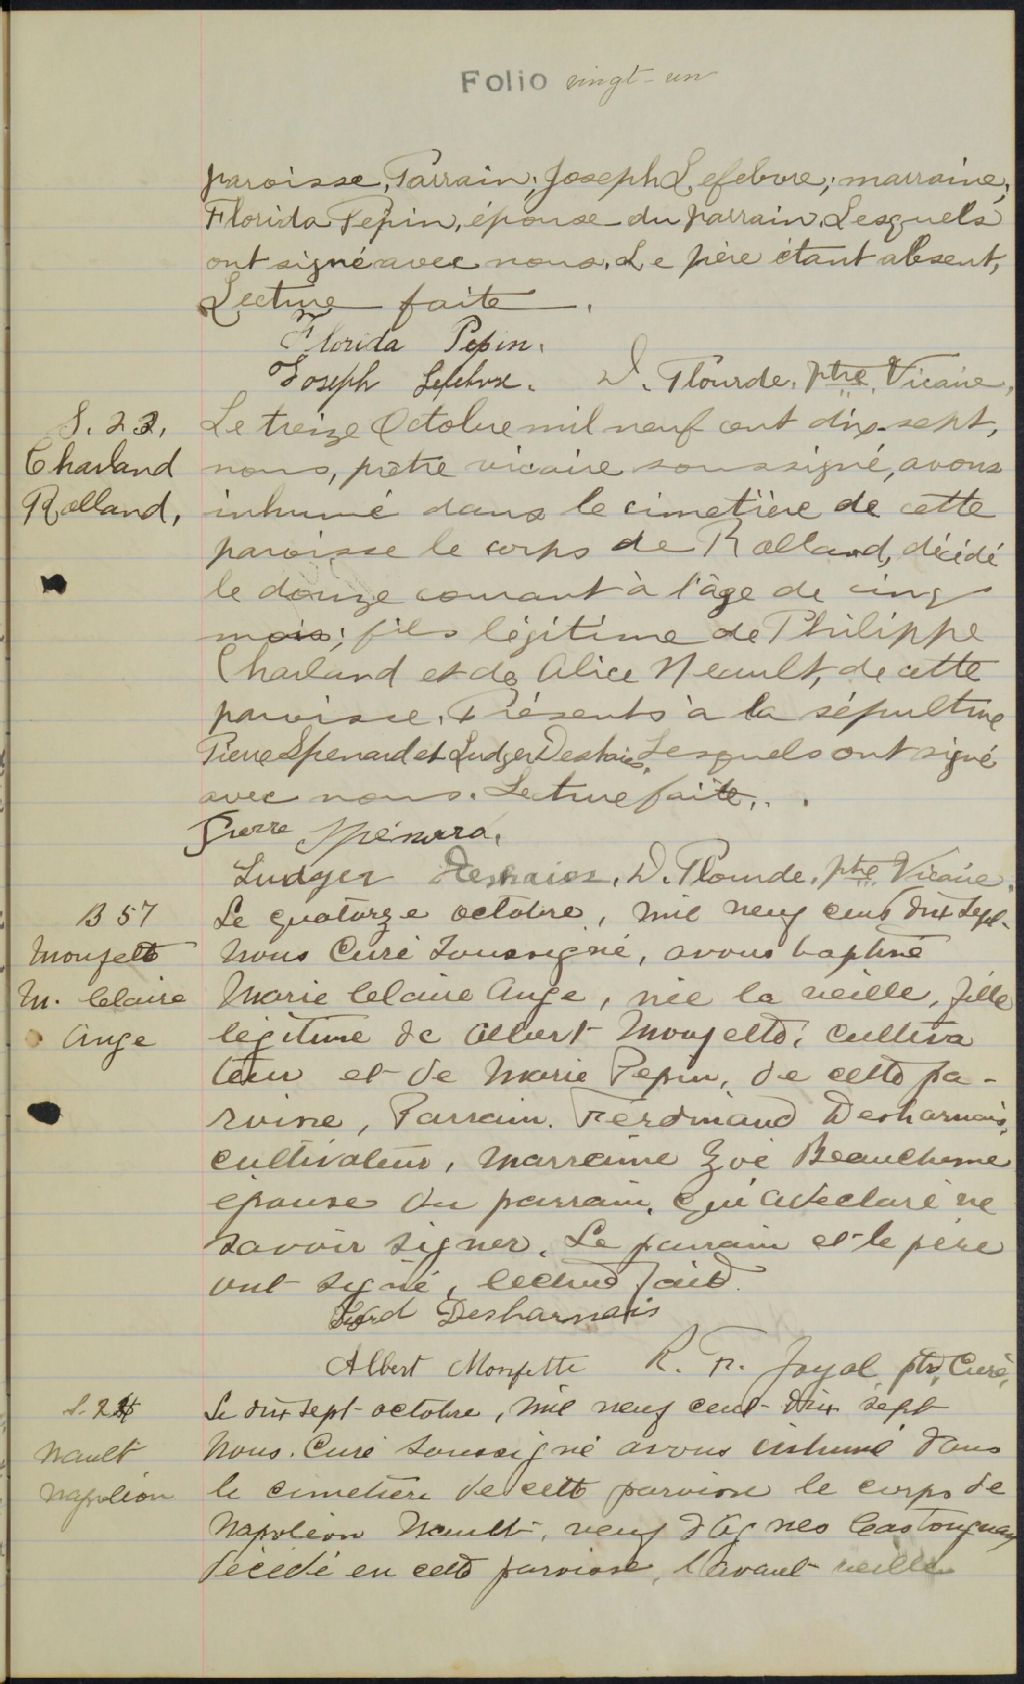 Folio vingt-un
paroisse, Parrain; Joseph Lefebvre; marraine;
Florida Pepin, épouse du parrain. Lesquels
ont signé avec nous. Le père étant absent,
Lecture faite.
Florida Pepin.
Joseph Lefebvre. D. Plourde, ptre Vicaire,
S. 23,
Charland
Rolland,
Le treize Octobre mil neuf cent dix-sept,
nous, prêtre vicaire soussigné, avons
inhumé dans le cimetière de cette
paroisse le corps de Rolland, décédé
le douze courant à l'âge de cinq
mois; fils légitime de Philippe
Charland et de Alice Neault, de cette
paroisse. Présents à la sépulture
Pierre Spenard et Ludger Deshaies. Lesquels ont signé
avec nous. Lecture faite...
Pierre Spénard,
Ludger Deshaies. D. Plourde. ptre Vicaire.
B 57
Monfette
M. Claire
Ange
Le quatorze octobre, mil neuf cent dix sept-
Nous Curé soussigné, avons baptisé
Marie Claire Ange, née la veille, fille
légitime de Albert Monfette, cultiva
teur et de Marie Pepin, de cette pa-
roisse, Parrain. Ferdinand Desharnais,
cultivateur, Marraine Zoé Beauchesne
épouse du parrain, qui a déclaré ne
savoir signer. Le parrain et le père
ont signé, lecture faite.
Ferd Desharnais
Albert Monfette R. F. Joyal ptr, Curé,
S. 24
Nault
Napoléon
Le dix sept octobre, mil neuf cent dix sept
Nous. Curé soussigné avons inhumé dans
le cimetière de cette paroisse le corps de
Napoléon Nault, veuf d'Agnes Castonguay
décédé en cette paroisse, l'avant veille